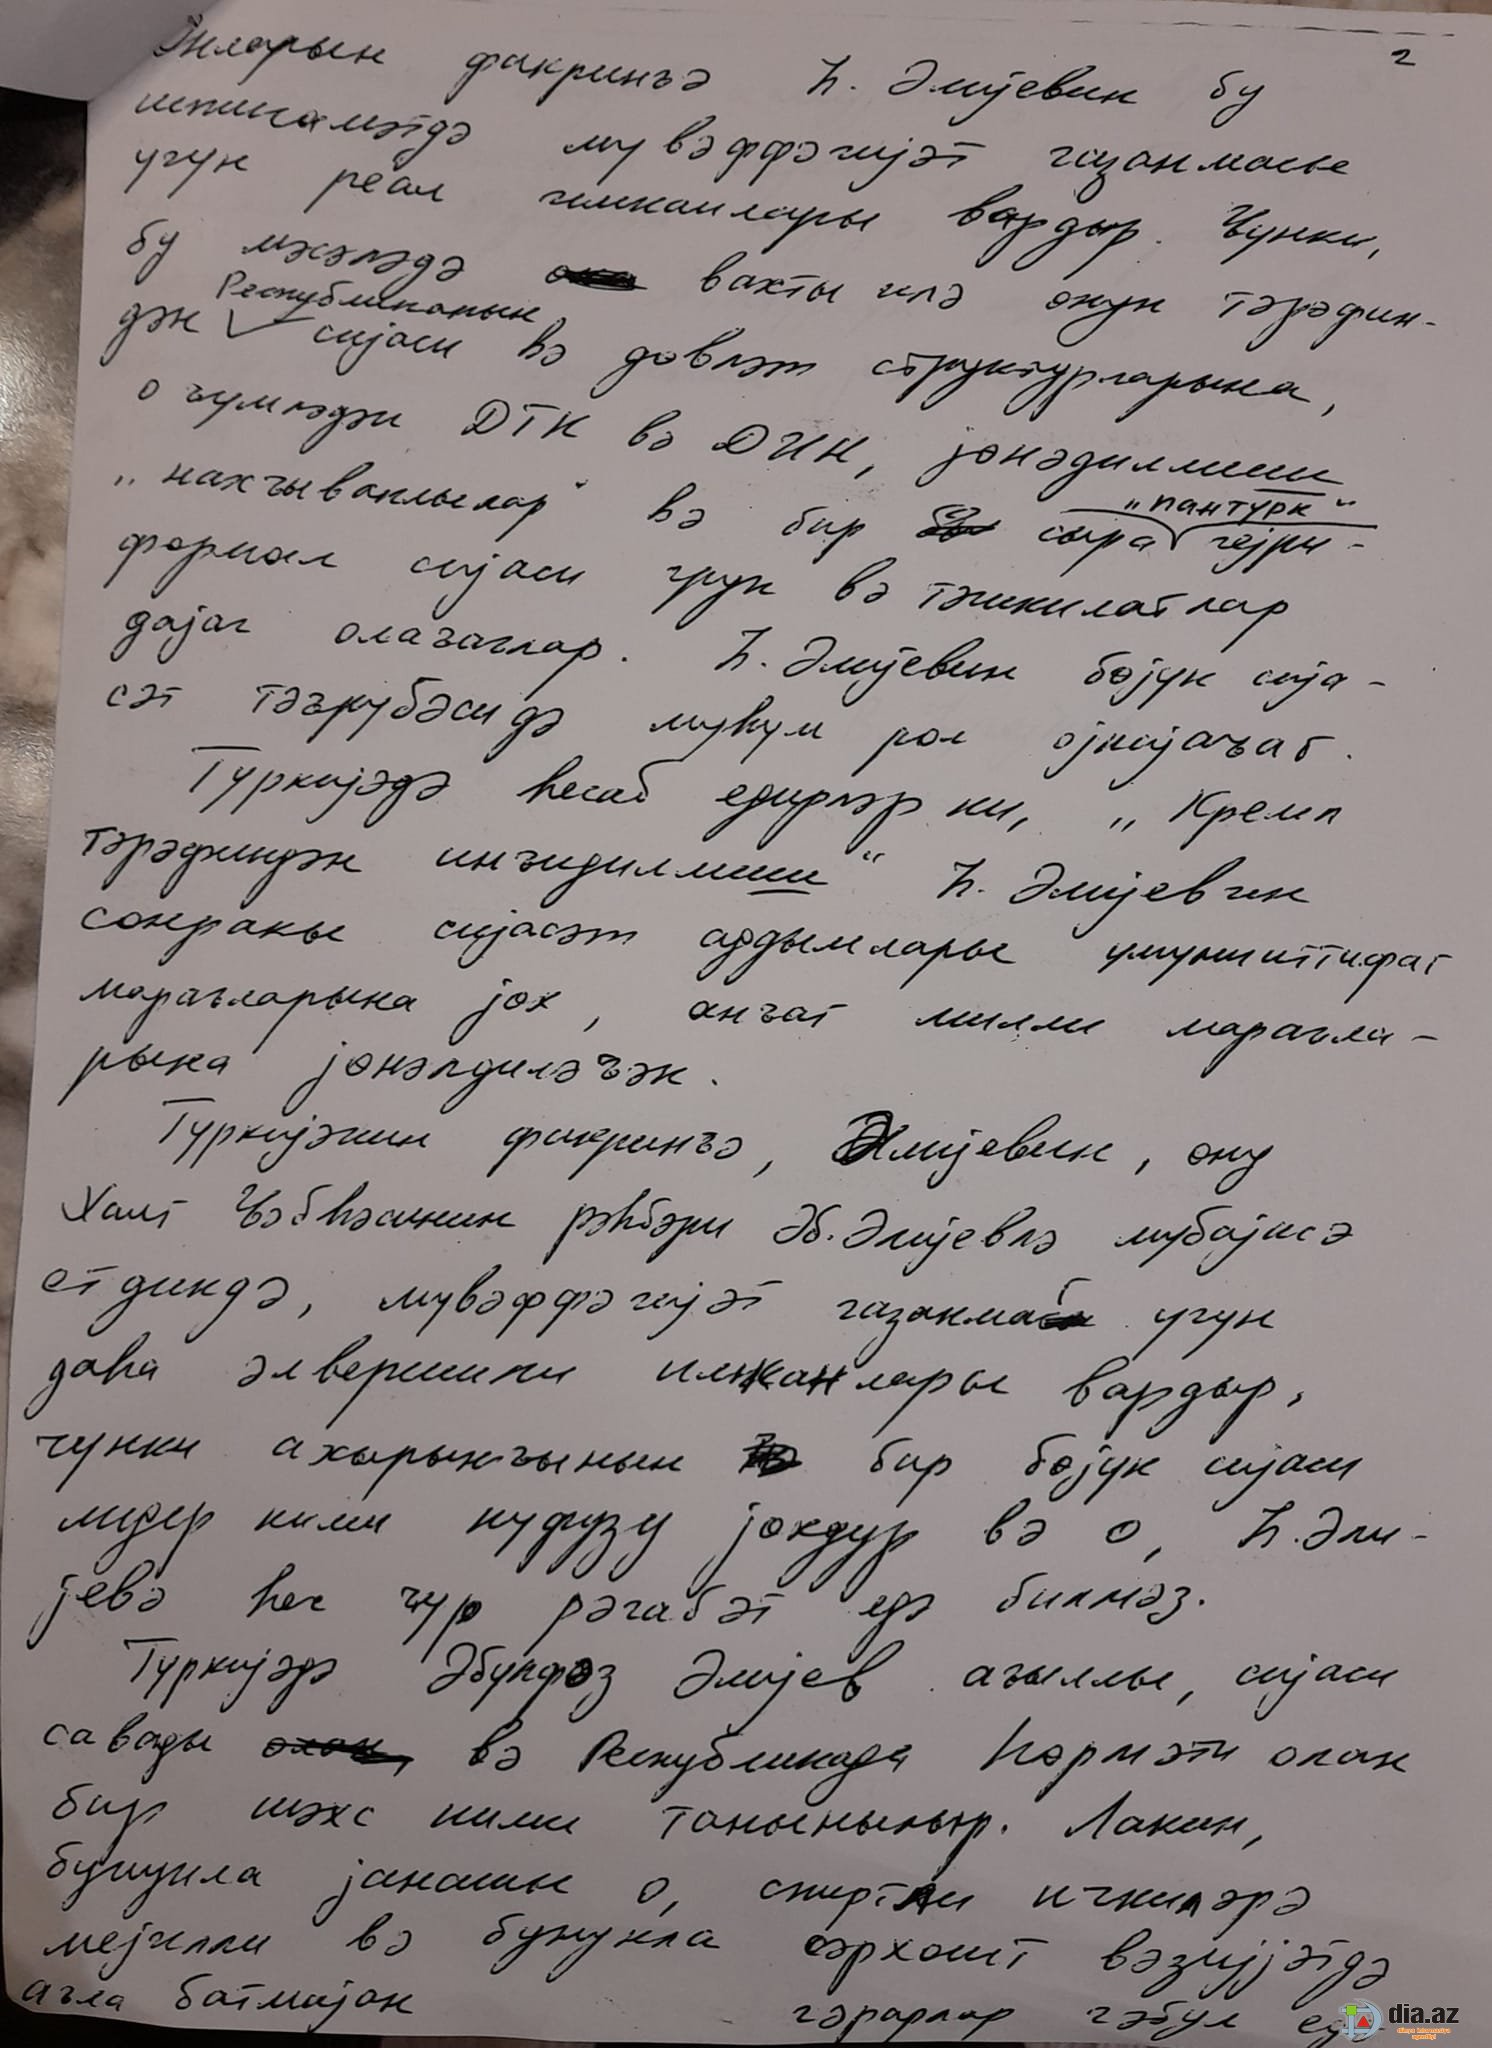 2
Онларын фикринҹə Һ. Əлијевин бу
истигамəтдə мувəффəгијəт газанмасы
учун реал имканлары вардыр. Чунки,
бу мəсəлəдə вахты илə онун тəрəфин-
Республиканын
дəн сијаси вə довлəт структурларына,
о ҹумлəдəн ДТК вə ДИН, јөнəдилмиш
„нахҹыванлылар“ вə бир сыра „пантурк“ гејри-
формал сијаси груп вə тəшкилатлар
дајаг олаҹаглар. Һ. Əлијевин бөјук сија-
сəт тəҹрубəси дə муһум рол ојнајаҹаг.
Туркијəдə һесаб едирлəр ки, „Кремл
тəрəфиндəн инҹидилмиш“ Һ. Əлијевин
сонракы сијасəт аддымлары умумиттифаг
марагларына јох, анҹаг милли марагла-
рына јөнəлдилəҹəк.
Туркијəнин фикринҹə, Əлијевин, ону
Халг Ҹəбһəсинин рəһбəри Əб. Əлијевлə мугајисə
етдикдə, мувəффəгијəт газанмаг учун
даһа əлверишли имканлары вардыр,
чунки ахырынҹынын бир бөјук сијаси
лидер кими нуфузу јохдур вə о, Һ. Əли-
јевə һеч ҹур рəгабəт едə билмəз.
Туркијəдə Əбулфəз Əлијев ағыллы, сијаси
савады вə Республикада һөрмəти олан
бир шəхс кими таныныр. Лакин,
бунунла јанашы о, спиртли ичкилəрə
мејилли вə бунунла сəрхош вəзијјəтдə
ағла батмајан гəрарлар гəбул еди
dia.az